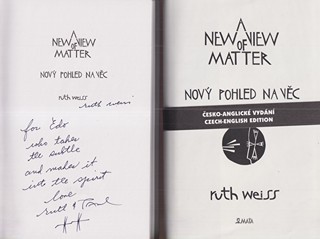 A
NEW VIEW
OF
MATTER
NOVÝ POHLED NA VĚC
ruth weiss
ruth weiss
for Edo
who takes
the subtle
and makes it
into the spirit
love
ruth &
A
NEW VIEW
OF
MATTER
NOVÝ POHLED NA VĚC
ČESKO-ANGLICKÉ VYDÁNÍ
CZECH-ENGLISH EDITION
ruth weiss
MATA